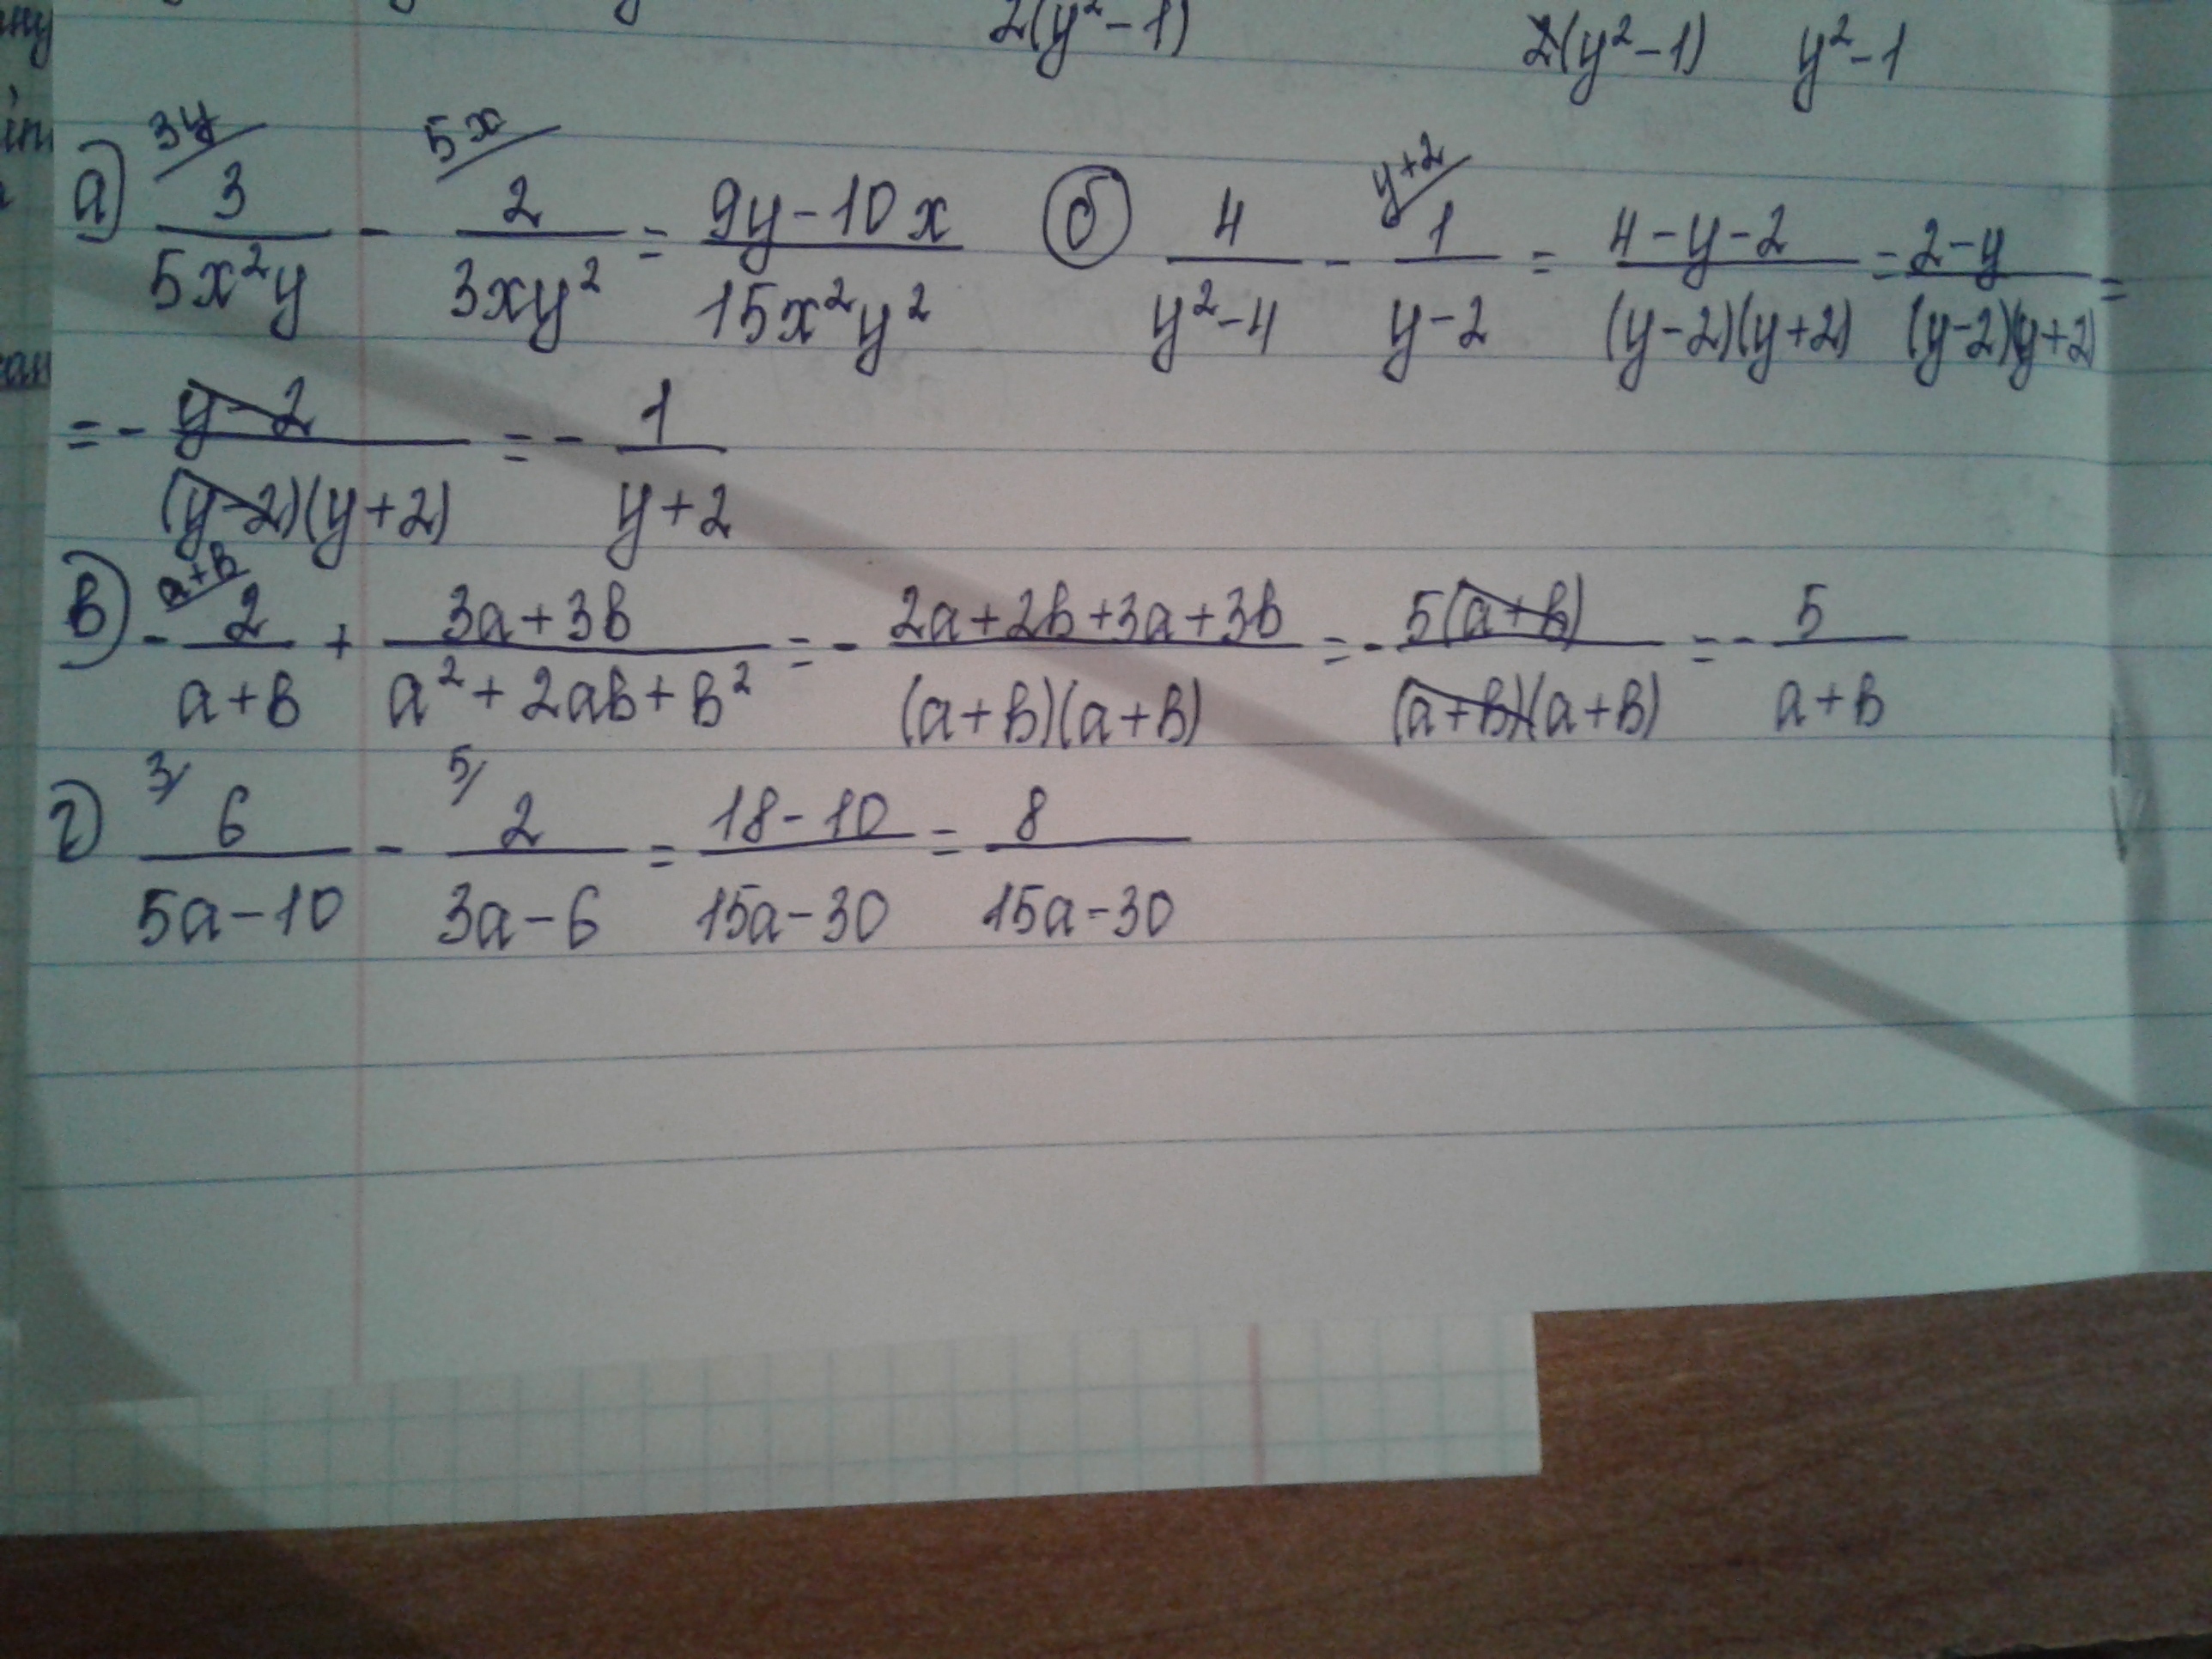 2(y²-1) 2(y²-1) y²-1
а) 3y/ 3/(5x²y) - 5x/ 2/(3xy²) = (9y-10x)/(15x²y²) б) 4/(y²-4) - y+2/ 1/(y-2) = (4-y-2)/((y-2)(y+2)) = (2-y)/((y-2)(y+2)) =
= - (y-2)/((y-2)(y+2)) = - 1/(y+2)
в) - a+b/ 2/(a+b) + (3a+3b)/(a²+2ab+b²) = - (2a+2b+3a+3b)/((a+b)(a+b)) = - 5(a+b)/((a+b)(a+b)) = - 5/(a+b)
г) 3/ 6/(5a-10) - 5/ 2/(3a-6) = (18-10)/(15a-30) = 8/(15a-30)